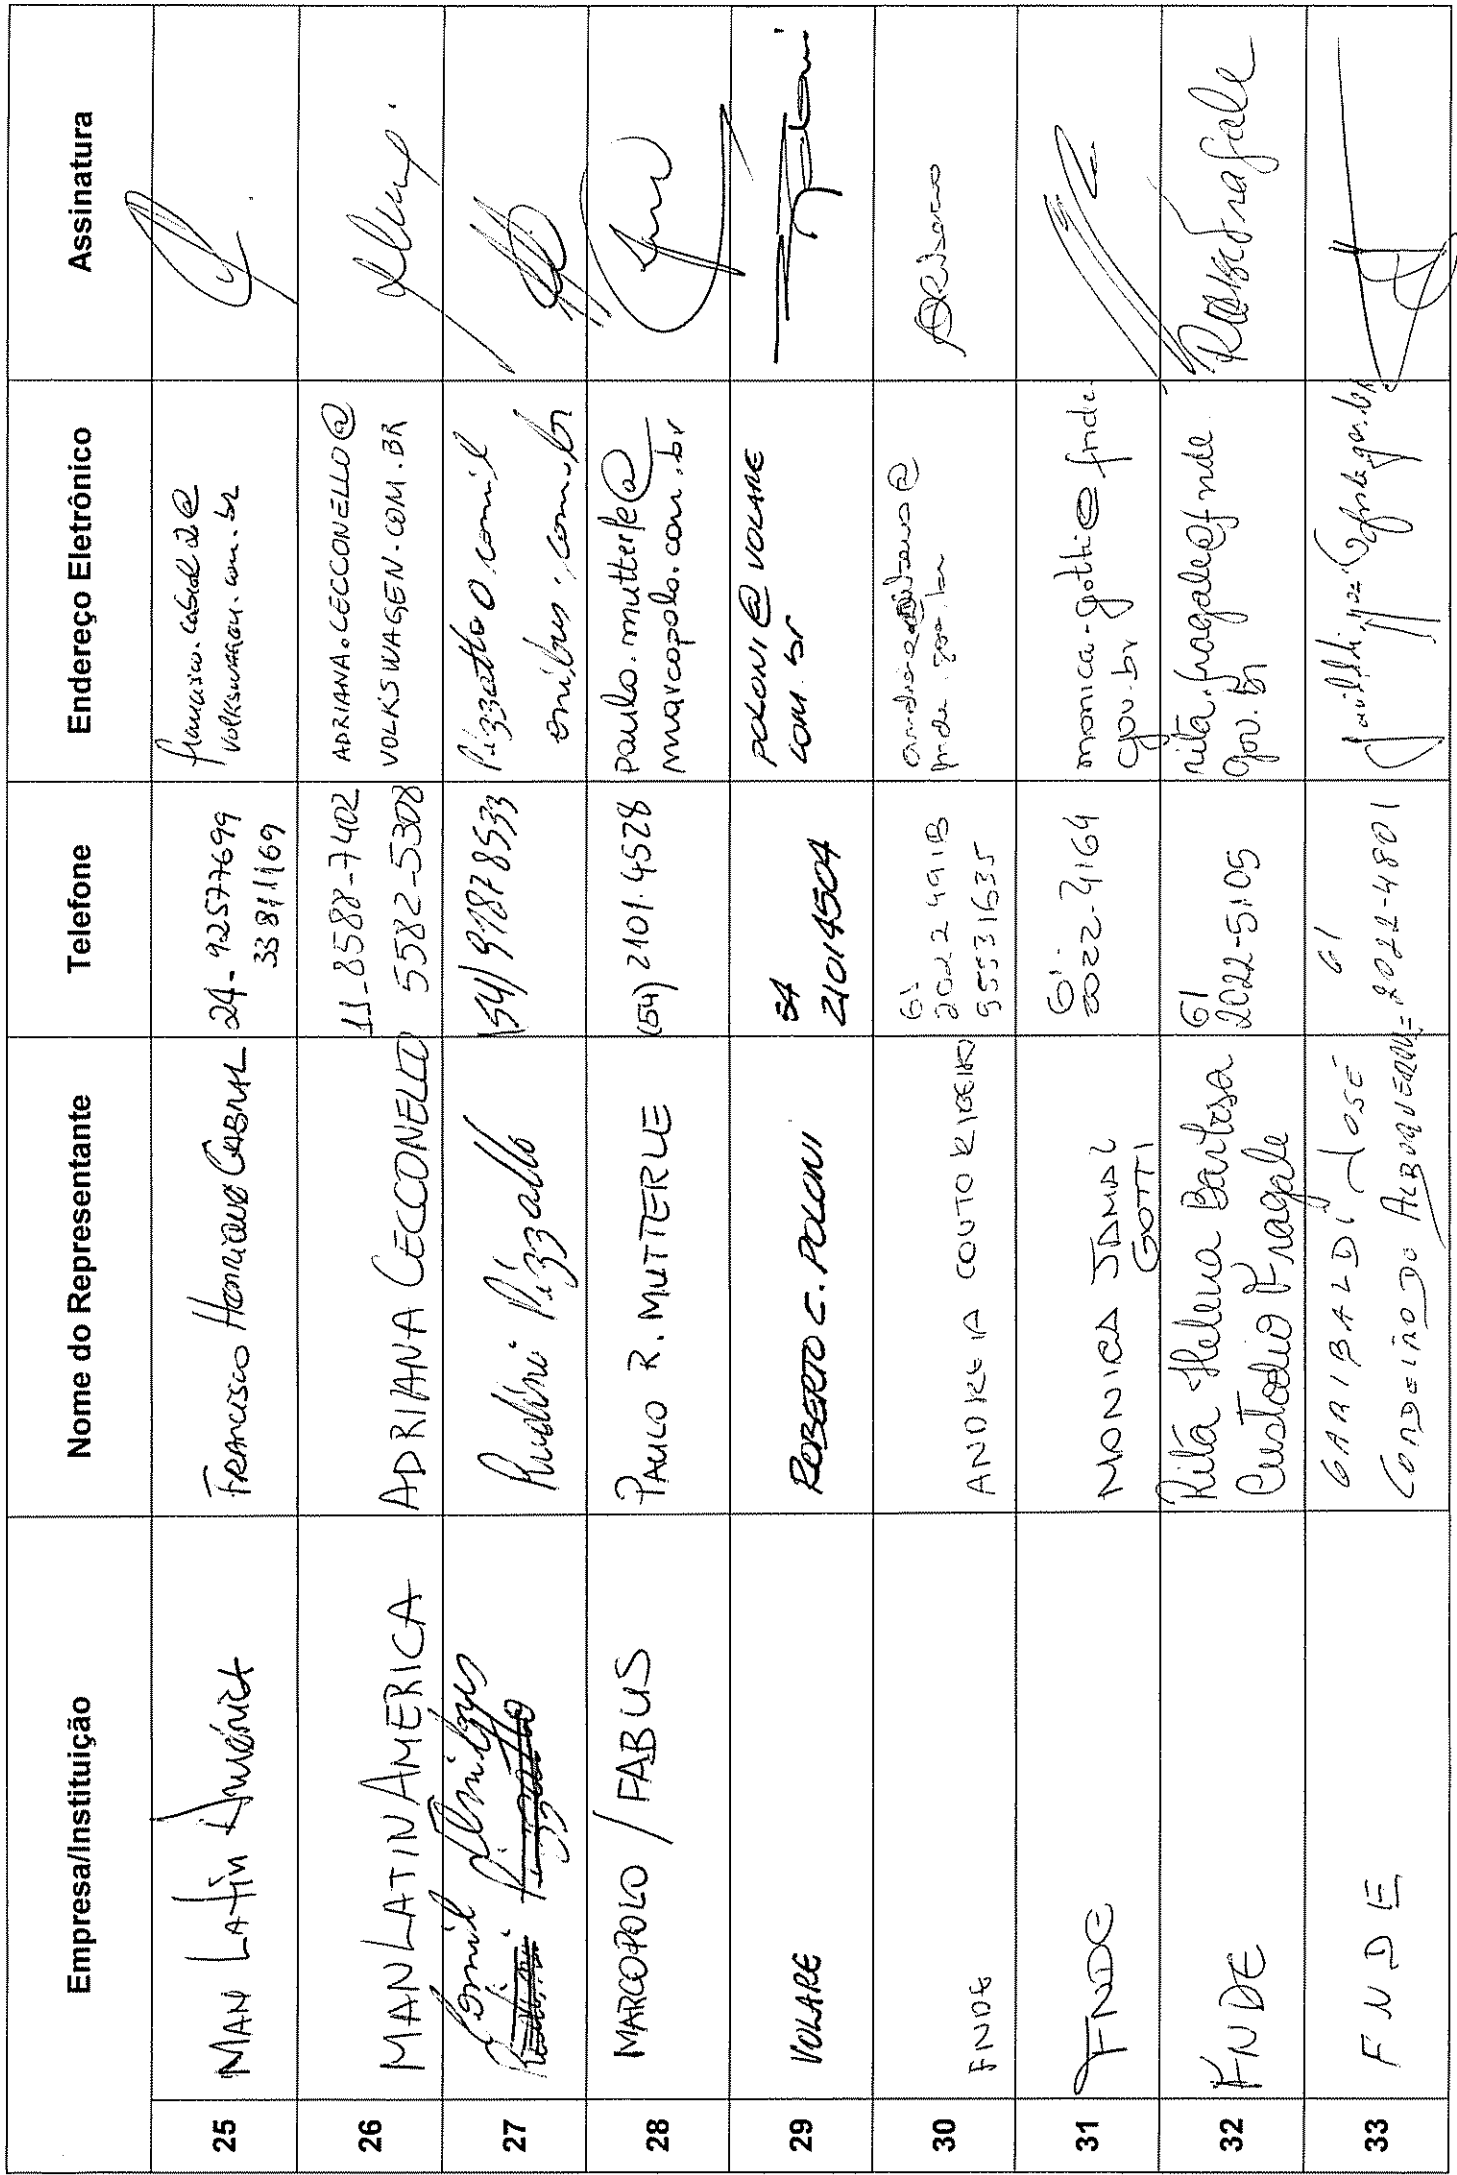 Empresa/Instituição
Nome do Representante
Telefone
Endereço Eletrônico
Assinatura
25
MAN Latin América
Francisco Henrique Cabral
24-92577699
33811169
francisco.cabral
volkswagen.com.br
26
MAN LATIN AMERICA
ADRIANA CECCONELLO
11-8588-7402
5582-5308
ADRIANA.CECCONELLO@
VOLKSWAGEN.COM.BR
27
Comil
Rudini Pizzatto
(54) 91878533
28
MARCOPOLO / FABUS
PAULO R. MUTTERLE
(54) 2101.4528
paulo.mutterle@
marcopolo.com.br
29
VOLARE
ROBERTO C. POLONI
54
21014504
POLONI@VOLARE
COM.br
30
FNDE
ANDREIA COUTO RIBEIRO
61
95531635
31
FNDE
MONICA JAMAL
GOTTI
monica.gotti@fnde.
gov.br
32
FNDE
Rita Helena Barbosa
Custodio Fragale
61
2022-5105
rita.fragale@fnde
gov.br
33
FNDE
GARIBALDI JOSÉ
CORDEIRO DO ALBUQUERQUE
61
2022-4801